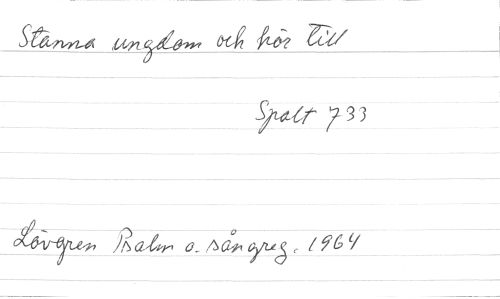 Stanna ungdom och hör till
Spalt 733
Lövgren Psalm o. sångreg. 1964